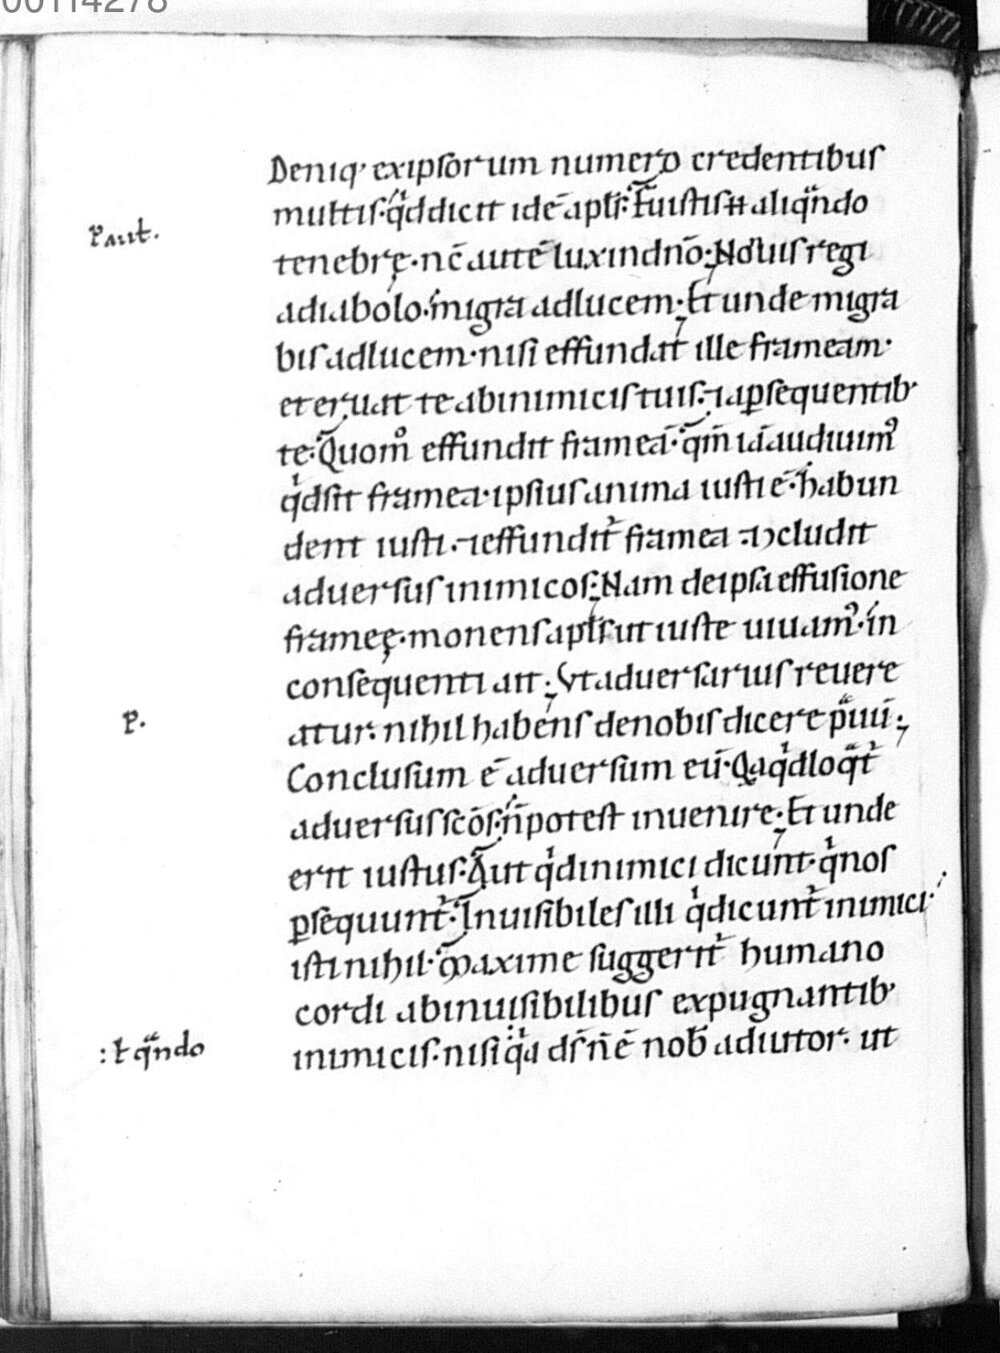 00114278
Deniq· exipsorum numero credentibus
Paul.
multis·qd dicit idē apłs: Fuistis aliqndo
tenebrę·nc̄ autē lux in dnō: Noluisregi
adiabolo·migra adlucem: Et unde migra
bis adlucem·nisi effundat ille frameam·
et eruat te abinimicis tuis·⁊apsequentib·
te: Quom̊ effundit frameā·qm̄ iā audiuim᾿
qd sit framea·ipsius anima iusti ē·habun
dent iusti·⁊effundit᾿ framea ⁊ɔcludit
aduersus inimicos: Nam deipsa effusione
frameę·monens apłs ut iuste uiuam᾿·in
consequenti ait: Vt aduersarius reuere
P.
atur·nihil habens denobis dicere
Conclusum ē aduersum eū·Qa qd loqt᾿
aduersus scōs·n̄potest inuenire: Et unde
erit iustus: Aut qd inimici dicunt·q nos
psequunt᾿: Inuisibiles illi q dicunt᾿ inimici·
isti nihil: Maxime suggerit᾿ humano
cordi abinuisibilibus expugnantib·
: ł qndo
inimicis·nisi qa ds̄ n̄ ē nob adiutor· ut